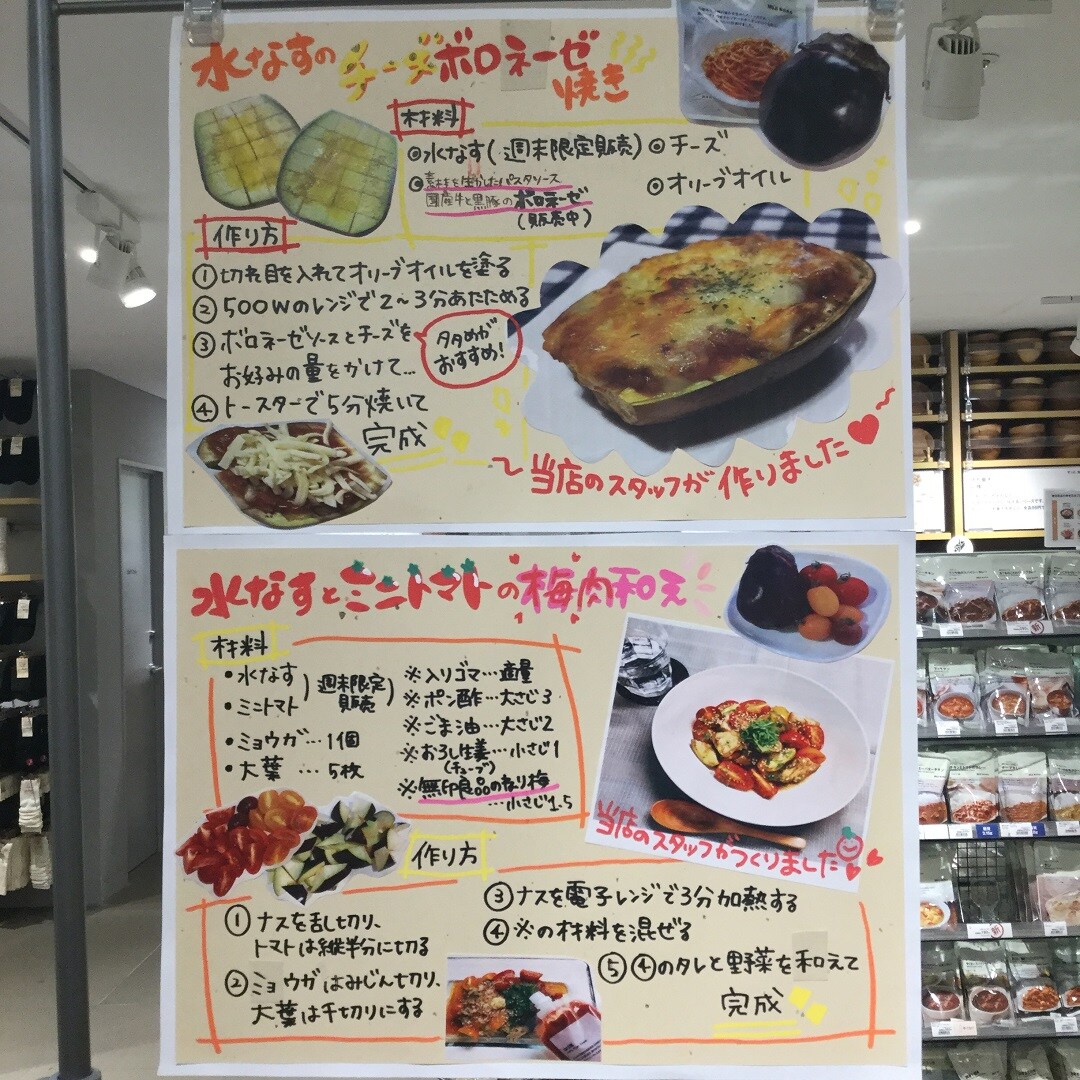 水なすのチーズボロネーゼ
焼き
材料
◎水なす(週末限定販売)◎チーズ
◎素材を生かしたパスタソース
国産牛と黒豚のボロネーゼ
(販売中)
◎オリーブオイル
作り方
①切れ目を入れてオリーブオイルを塗る
②500Wのレンジで2〜3分あたためる
③ボロネーゼソースとチーズを
お好みの量をかけて…
多めが
おすすめ!
④トースターで5分焼いて
完成
〜当店のスタッフが作りました♥〜
水なすとミニトマトの梅肉和え
材料
・水なす
・ミニトマト
)週末限定
販売)
・ミョウガ…1個
・大葉…5枚
※入りゴマ…適量
※ポン酢…大さじ3
※ごま油…大さじ2
※おろし生姜…小さじ1
(チューブ)
※無印良品のねり梅
…小さじ1.5
当店のスタッフがつくりました
作り方
①ナスを乱切り、
トマトは縦半分に切る
②ミョウガはみじん切り、
大葉は千切りにする
③ナスを電子レンジで3分加熱する
④※の材料を混ぜる
⑤④のタレと野菜を和えて
完成